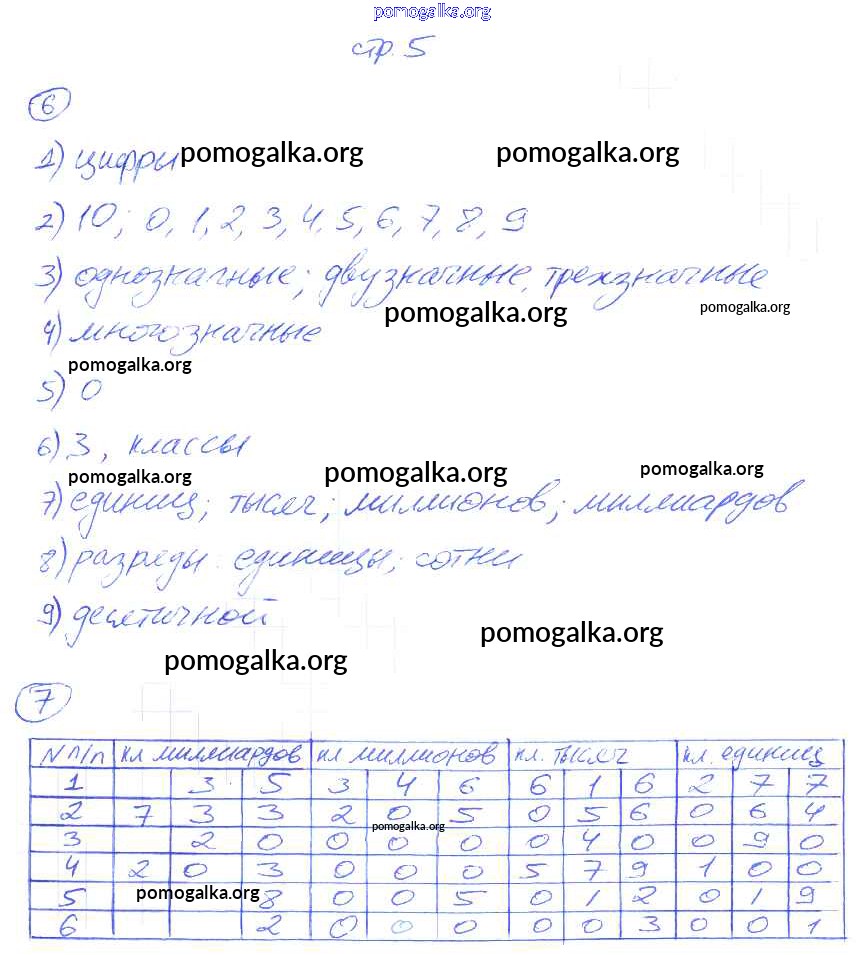 pomogalka.org
стр. 5
6
1) цифры pomogalka.org pomogalka.org
2) 10; 0, 1, 2, 3, 4, 5, 6, 7, 8, 9
3) однозначные; двузначные, трехзначные
pomogalka.org pomogalka.org
4) многозначные
pomogalka.org
5) 0
6) 3, классы
pomogalka.org pomogalka.org pomogalka.org
7) единиц; тысяч; миллионов; миллиардов
8) разряды: единицы; сотни
9) десятичной
pomogalka.org pomogalka.org
7
N п/п кл миллиардов кл миллионов кл. тысяч кл. единиц
1 3 5 3 4 6 6 1 6 2 7 7
2 7 3 3 2 0 5 0 5 6 0 6 4
pomogalka.org
3 2 0 0 0 0 0 4 0 0 9 0
4 2 0 3 0 0 0 5 7 9 1 0 0
5 pomogalka.org 8 0 0 5 0 1 2 0 1 9
6 2 0 0 0 0 0 3 0 0 1